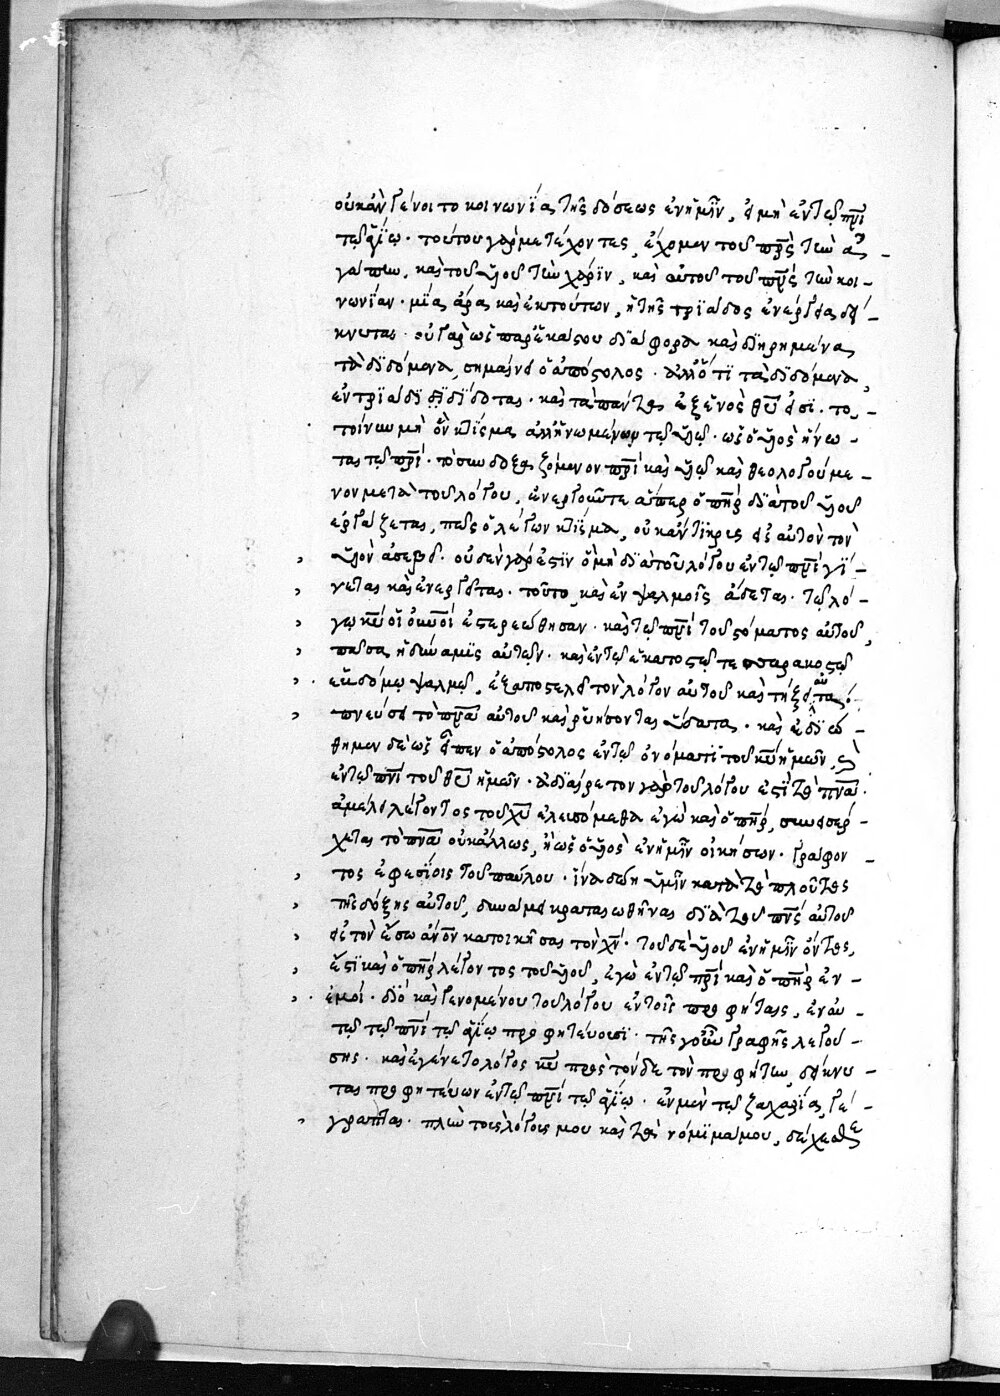 οὐκ ἂν γένοιτο κοινωνία τῆς δόσεως ἐν ἡμῖν, εἰ μὴ ἐν τῷ πν̅ι̅
τῷ ἁγίῳ. τούτου γὰρ μετέχοντες, ἔχομεν τοῦ πρ̅ς̅ τὴν ἀ-
γάπην, καὶ τοῦ υἱοῦ τὴν χάριν, καὶ αὐτοῦ τοῦ πν̅ς̅ τὴν κοι-
νωνίαν. μία ἄρα καὶ ἐκ τούτων, ἡ τῆς τριάδος ἐνέργεια δεί-
κνυται. οὐ γὰρ ὡς παρ' ἑκάστου διάφορα καὶ διῃρημένα
τὰ διδόμενα, σημαίνει ὁ ἀπόστολος. ἀλλ' ὅτι τὰ διδόμενα,
ἐν τριάδι δίδοται. καὶ τὰ πάντα ἐξ ἑνὸς θ̅υ̅ εἰσι. τὸ -
τοίνυν μὴ ὂν κτίσμα ἀλλ' ἡνωμένον τῷ υἱῷ. ὡς ὁ υἱὸς ἥνω -
ται τῷ πρ̅ι̅. τὸ συνδοξαζόμενον πρ̅ι̅ καὶ υἱῷ καὶ θεολογούμε
νον μετὰ τοῦ λόγου, ἐνεργοῦν τε ἅπερ ὁ πη̅ρ̅ διὰ τοῦ υἱοῦ
ἐργάζεται, πῶς ὁ λέγων κτίσμα, οὐκ ἄντικρυς εἰς αὐτὸν τὸν
υἱὸν ἀσεβεῖ. οὐδὲν γάρ ἐστιν ὃ μὴ διὰ τοῦ λόγου ἐν τῷ πν̅ι̅ γί -
νεται καὶ ἐνεργεῖται. τοῦτο, καὶ ἐν ψαλμοῖς ᾄδεται. τῷ λό -
γῳ κ̅υ̅ οἱ οὐ̅νοί ἐστερεώθησαν. καὶ τῷ πν̅ι̅ τοῦ στόματος αὐτοῦ,
πᾶσα ἡ δύναμις αὐτῶν. καὶ ἐν τῷ ἑκατοστῷ τεσσαρακοστῷ
ἑβδόμῳ ψαλμῷ, ἐξαποστελεῖ τὸν λόγον αὐτοῦ καὶ τήξει αὐτά.
πνεύσει τὸ πν̅α̅ αὐτοῦ καὶ ῥυήσονται ὕδατα. καὶ ἐδικαιώ -
θημεν δὲ ὡς εἶπεν ὁ ἀπόστολος ἐν τῷ ὀνόματι τοῦ κ̅υ̅ ἡμῶν, καὶ
ἐν τῷ πν̅ι̅ τοῦ θ̅υ̅ ἡμῶν. ἀδιαίρετον γὰρ τοῦ λόγου ἐστὶ τὸ πν̅α̅.
ἀμέλει λέγοντος τοῦ χ̅υ̅ ἐλευσόμεθα ἐγὼ καὶ ὁ πη̅ρ̅, συνεισέρ
χεται τὸ πν̅α̅ οὐκ ἄλλως, ἢ ὡς ὁ υἱὸς ἐν ἡμῖν οἰκῆσον. γράφον -
τος ἐφεσίοις τοῦ παύλου. ἵνα δώῃ ὑμῖν κατὰ τὸ πλοῦτος
τῆς δόξης αὐτοῦ, δυνάμει κραταιωθῆναι διὰ τοῦ πν̅ς̅ αὐτοῦ
εἰς τὸν ἔσω ἄν̅ον κατοικῆσαι τὸν χ̅ν̅. τοῦ δὲ υἱοῦ ἐν ἡμῖν ὄντος,
ἔστι καὶ ὁ πη̅ρ̅ λέγοντος τοῦ υἱοῦ, ἐγὼ ἐν τῷ πρ̅ι̅ καὶ ὁ πη̅ρ̅ ἐν -
ἐμοί. διὸ καὶ γενομένου τοῦ λόγου ἐν τοῖς προφήταις, ἐν αὐ
τῷ τῷ πν̅ι̅ τῷ ἁγίῳ προφητεύουσι. τῆς γοῦν γραφῆς λεγού -
σης. καὶ ἐγένετο λόγος κ̅υ̅ πρὸς τόνδε τὸν προφήτην, δείκνυ -
ται προφητεύων ἐν τῷ πν̅ι̅ τῷ ἁγίῳ. ἐν μὲν τῷ ζαχαρίᾳ γέ -
γραπται. πλὴν τοὺς λόγους μου καὶ τὰ νόμιμά μου, δέχεσθε